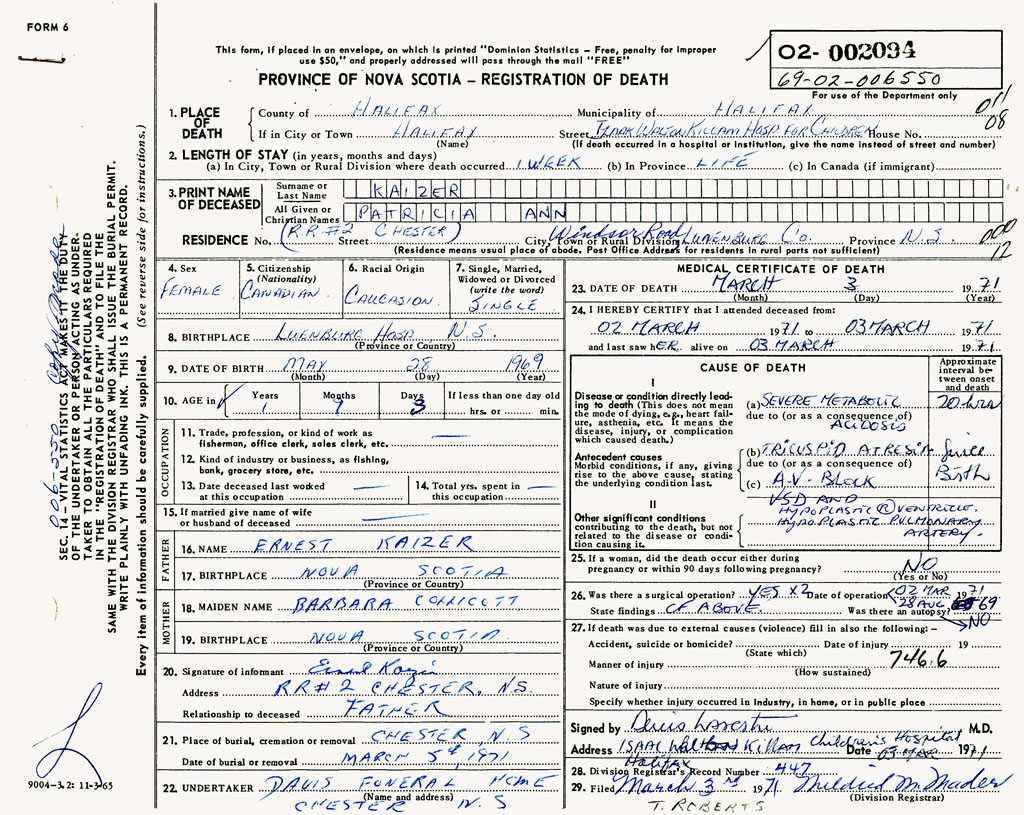 FORM 6
This form, if placed in an envelope, on which is printed "Dominion Statistics – Free, penalty for improper
use $50," and properly addressed will pass through the mail "FREE"
PROVINCE OF NOVA SCOTIA – REGISTRATION OF DEATH
02- 002094
69-02-006550
For use of the Department only
011
08
1. PLACE OF DEATH
County of HALIFAX Municipality of HALIFAX
If in City or Town HALIFAX Street IZAAK WALTON KILLAM HOSP. FOR CHILDREN House No.
(Name) (If death occurred in a hospital or institution, give the name instead of street and number)
2. LENGTH OF STAY (in years, months and days)
(a) In City, Town or Rural Division where death occurred 1 WEEK (b) In Province LIFE (c) In Canada (if immigrant)
3. PRINT NAME OF DECEASED
Surname or Last Name KAIZER
All Given or Christian Names PATRICIA ANN
RESIDENCE No. (R.R.#2 Street CHESTER) City, Town or Rural Division Windsor Road LUNENBURG Co. Province N.S.
(Residence means usual place of abode. Post Office Address for residents in rural parts not sufficient)
000
12
4. Sex FEMALE
5. Citizenship (Nationality) CANADIAN
6. Racial Origin CAUCASION
7. Single, Married, Widowed or Divorced (write the word) SINGLE
8. BIRTHPLACE LUENBURG HOSP. N.S.
(Province or Country)
9. DATE OF BIRTH MAY 28 1969
(Month) (Day) (Year)
10. AGE in Years 1 Months 9 Days 3 If less than one day old
hrs. or min.
OCCUPATION
11. Trade, profession, or kind of work as
fisherman, office clerk, sales clerk, etc.
12. Kind of industry or business, as fishing,
bank, grocery store, etc.
13. Date deceased last worked
at this occupation
14. Total yrs. spent in
this occupation
15. If married give name of wife
or husband of deceased
FATHER
16. NAME ERNEST KAIZER
17. BIRTHPLACE NOVA SCOTIA
(Province or Country)
MOTHER
18. MAIDEN NAME BARBARA COLLICUTT
19. BIRTHPLACE NOVA SCOTIA
(Province or Country)
20. Signature of informant
Address RR#2 CHESTER, N.S.
Relationship to deceased FATHER
21. Place of burial, cremation or removal CHESTER N.S
Date of burial or removal MARCH 5th, 1971
22. UNDERTAKER DAVIS FUNERAL HOME
(Name and address)
CHESTER N.S
MEDICAL CERTIFICATE OF DEATH
23. DATE OF DEATH MARCH 3 1971
(Month) (Day) (Year)
24. I HEREBY CERTIFY that I attended deceased from:
02 MARCH 1971 to 03 MARCH 1971
and last saw hER alive on 03 MARCH 1971
CAUSE OF DEATH
Approximate interval between onset and death
I
Disease or condition directly leading to death (This does not mean the mode of dying, e.g., heart failure, asthenia, etc. It means the disease, injury, or complication which caused death.)
(a) SEVERE METABOLIC ACIDOSIS 20 hrs
due to (or as a consequence of)
Antecedent causes
Morbid conditions, if any, giving rise to the above cause, stating the underlying condition last.
(b) TRICUSPID ATRESIA Since Birth
due to (or as a consequence of)
(c) A-V- BLOCK
II
Other significant conditions
contributing to the death, but not related to the disease or condition causing it.
VSD AND
HYPOPLASTIC (R) VENTRICLE.
HYPOPLASTIC PULMONARY
ARTERY.
25. If a woman, did the death occur either during
pregnancy or within 90 days following pregnancy? NO
(Yes or No)
26. Was there a surgical operation? YES X2 Date of operation 02 MAR 1971
28 AUG 69
State findings CF ABOVE. Was there an autopsy? NO
27. If death was due to external causes (violence) fill in also the following: –
Accident, suicide or homicide? Date of injury 19
(State which)
Manner of injury 746.6
(How sustained)
Nature of injury
Specify whether injury occurred in industry, in home, or in public place
Signed by M.D.
Address ISAAC Walton Killam Children's Hospital Date 03 MAR 1971
Halifax
28. Division Registrar's Record Number 447
29. Filed March 3rd 1971 Mildred M. Mader
(Division Registrar)
T. ROBERTS
SEC. 14 – VITAL STATISTICS ACT MAKES IT THE DUTY
OF THE UNDERTAKER OR PERSON ACTING AS UNDERTAKER
TO OBTAIN ALL THE PARTICULARS REQUIRED
IN THE "REGISTRATION OF DEATH" AND TO FILE THE
SAME WITH THE DIVISION REGISTRAR WHO SHALL ISSUE THE BURIAL PERMIT.
WRITE PLAINLY WITH UNFADING INK. THIS IS A PERMANENT RECORD.
Every item of information should be carefully supplied. (See reverse side for instructions.)
006550
9004-3.2: 11-3-65